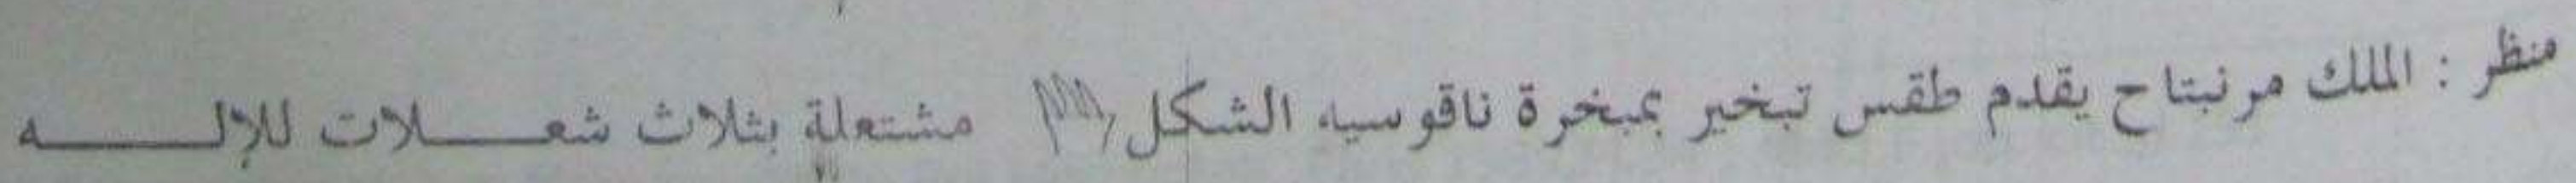 منظر : الملك مرنبتاح يقدم طقس تبخير بمبخرة ناقوسيه الشكل مشتعلة بثلاث شعلات للإله